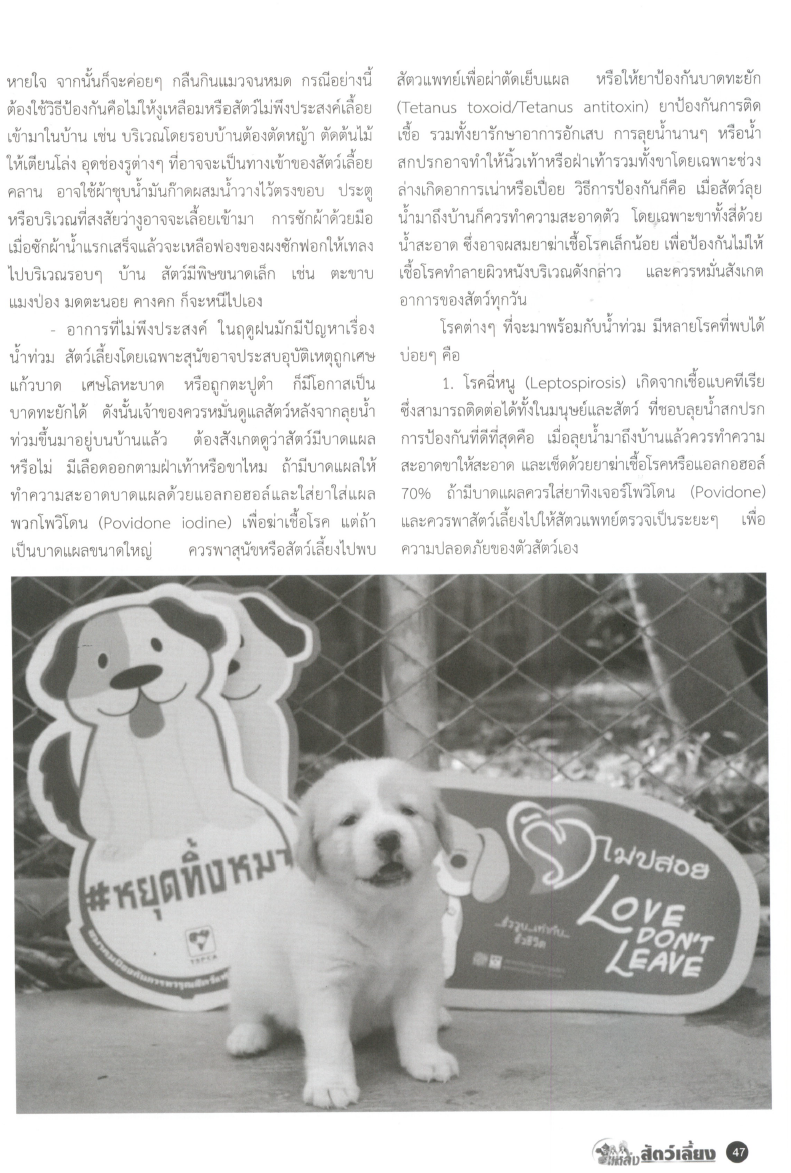 หายใจ จากนั้นก็จะค่อยๆ กลืนกินแมวจนหมด กรณีอย่างนี้
ต้องใช้วิธีป้องกันคือไม่ให้งูเหลือมหรือสัตว์ไม่พึงประสงค์เลื้อย
เข้ามาในบ้าน เช่น บริเวณโดยรอบบ้านต้องตัดหญ้า ตัดต้นไม้
ให้เตียนโล่ง อุดช่องรูต่างๆ ที่อาจจะเป็นทางเข้าของสัตว์เลื้อย
คลาน อาจใช้ผ้าชุบน้ำมันก๊าดผสมน้ำวางไว้ตรงขอบ ประตู
หรือบริเวณที่สงสัยว่างูอาจจะเลื้อยเข้ามา การซักผ้าด้วยมือ
เมื่อซักผ้าน้ำแรกเสร็จแล้วจะเหลือฟองของผงซักฟอกให้เทลง
ไปบริเวณรอบๆ บ้าน สัตว์มีพิษขนาดเล็ก เช่น ตะขาบ
แมงป่อง มดตะนอย คางคก ก็จะหนีไปเอง
- อาการที่ไม่พึงประสงค์ ในฤดูฝนมักมีปัญหาเรื่อง
น้ำท่วม สัตว์เลี้ยงโดยเฉพาะสุนัขอาจประสบอุบัติเหตุถูกเศษ
แก้วบาด เศษโลหะบาด หรือถูกตะปูตำ ก็มีโอกาสเป็น
บาดทะยักได้ ดังนั้นเจ้าของควรหมั่นดูแลสัตว์หลังจากลุยน้ำ
ท่วมขึ้นมาอยู่บนบ้านแล้ว ต้องสังเกตดูว่าสัตว์มีบาดแผล
หรือไม่ มีเลือดออกตามฝ่าเท้าหรือขาไหม ถ้ามีบาดแผลให้
ทำความสะอาดบาดแผลด้วยแอลกอฮอล์และใส่ยาใส่แผล
พวกโพวิโดน (Povidone iodine) เพื่อฆ่าเชื้อโรค แต่ถ้า
เป็นบาดแผลขนาดใหญ่ ควรพาสุนัขหรือสัตว์เลี้ยงไปพบ
สัตวแพทย์เพื่อผ่าตัดเย็บแผล หรือให้ยาป้องกันบาดทะยัก
(Tetanus toxoid/Tetanus antitoxin) ยาป้องกันการติด
เชื้อ รวมทั้งยารักษาอาการอักเสบ การลุยน้ำนานๆ หรือน้ำ
สกปรกอาจทำให้นิ้วเท้าหรือฝ่าเท้ารวมทั้งขาโดยเฉพาะช่วง
ล่างเกิดอาการเน่าหรือเปื่อย วิธีการป้องกันก็คือ เมื่อสัตว์ลุย
น้ำมาถึงบ้านก็ควรทำความสะอาดตัว โดยเฉพาะขาทั้งสี่ด้วย
น้ำสะอาด ซึ่งอาจผสมยาฆ่าเชื้อโรคเล็กน้อย เพื่อป้องกันไม่ให้
เชื้อโรคทำลายผิวหนังบริเวณดังกล่าว และควรหมั่นสังเกต
อาการของสัตว์ทุกวัน
โรคต่างๆ ที่จะมาพร้อมกับน้ำท่วม มีหลายโรคที่พบได้
บ่อยๆ คือ
1. โรคฉี่หนู (Leptospirosis) เกิดจากเชื้อแบคทีเรีย
ซึ่งสามารถติดต่อได้ทั้งในมนุษย์และสัตว์ ที่ชอบลุยน้ำสกปรก
การป้องกันที่ดีที่สุดคือ เมื่อลุยน้ำมาถึงบ้านแล้วควรทำความ
สะอาดขาให้สะอาด และเช็ดด้วยยาฆ่าเชื้อโรคหรือแอลกอฮอล์
70% ถ้ามีบาดแผลควรใส่ยาทิงเจอร์โพวิโดน (Povidone)
และควรพาสัตว์เลี้ยงไปให้สัตวแพทย์ตรวจเป็นระยะๆ เพื่อ
ความปลอดภัยของตัวสัตว์เอง
#หยุดทิ้งหมา
TSPCA
รักไม่ปล่อย
LOVE
DON'T
LEAVE
...รั้วจูน...เท่ากับ...
รั้วชีวิต
สัตว์เลี้ยง 47